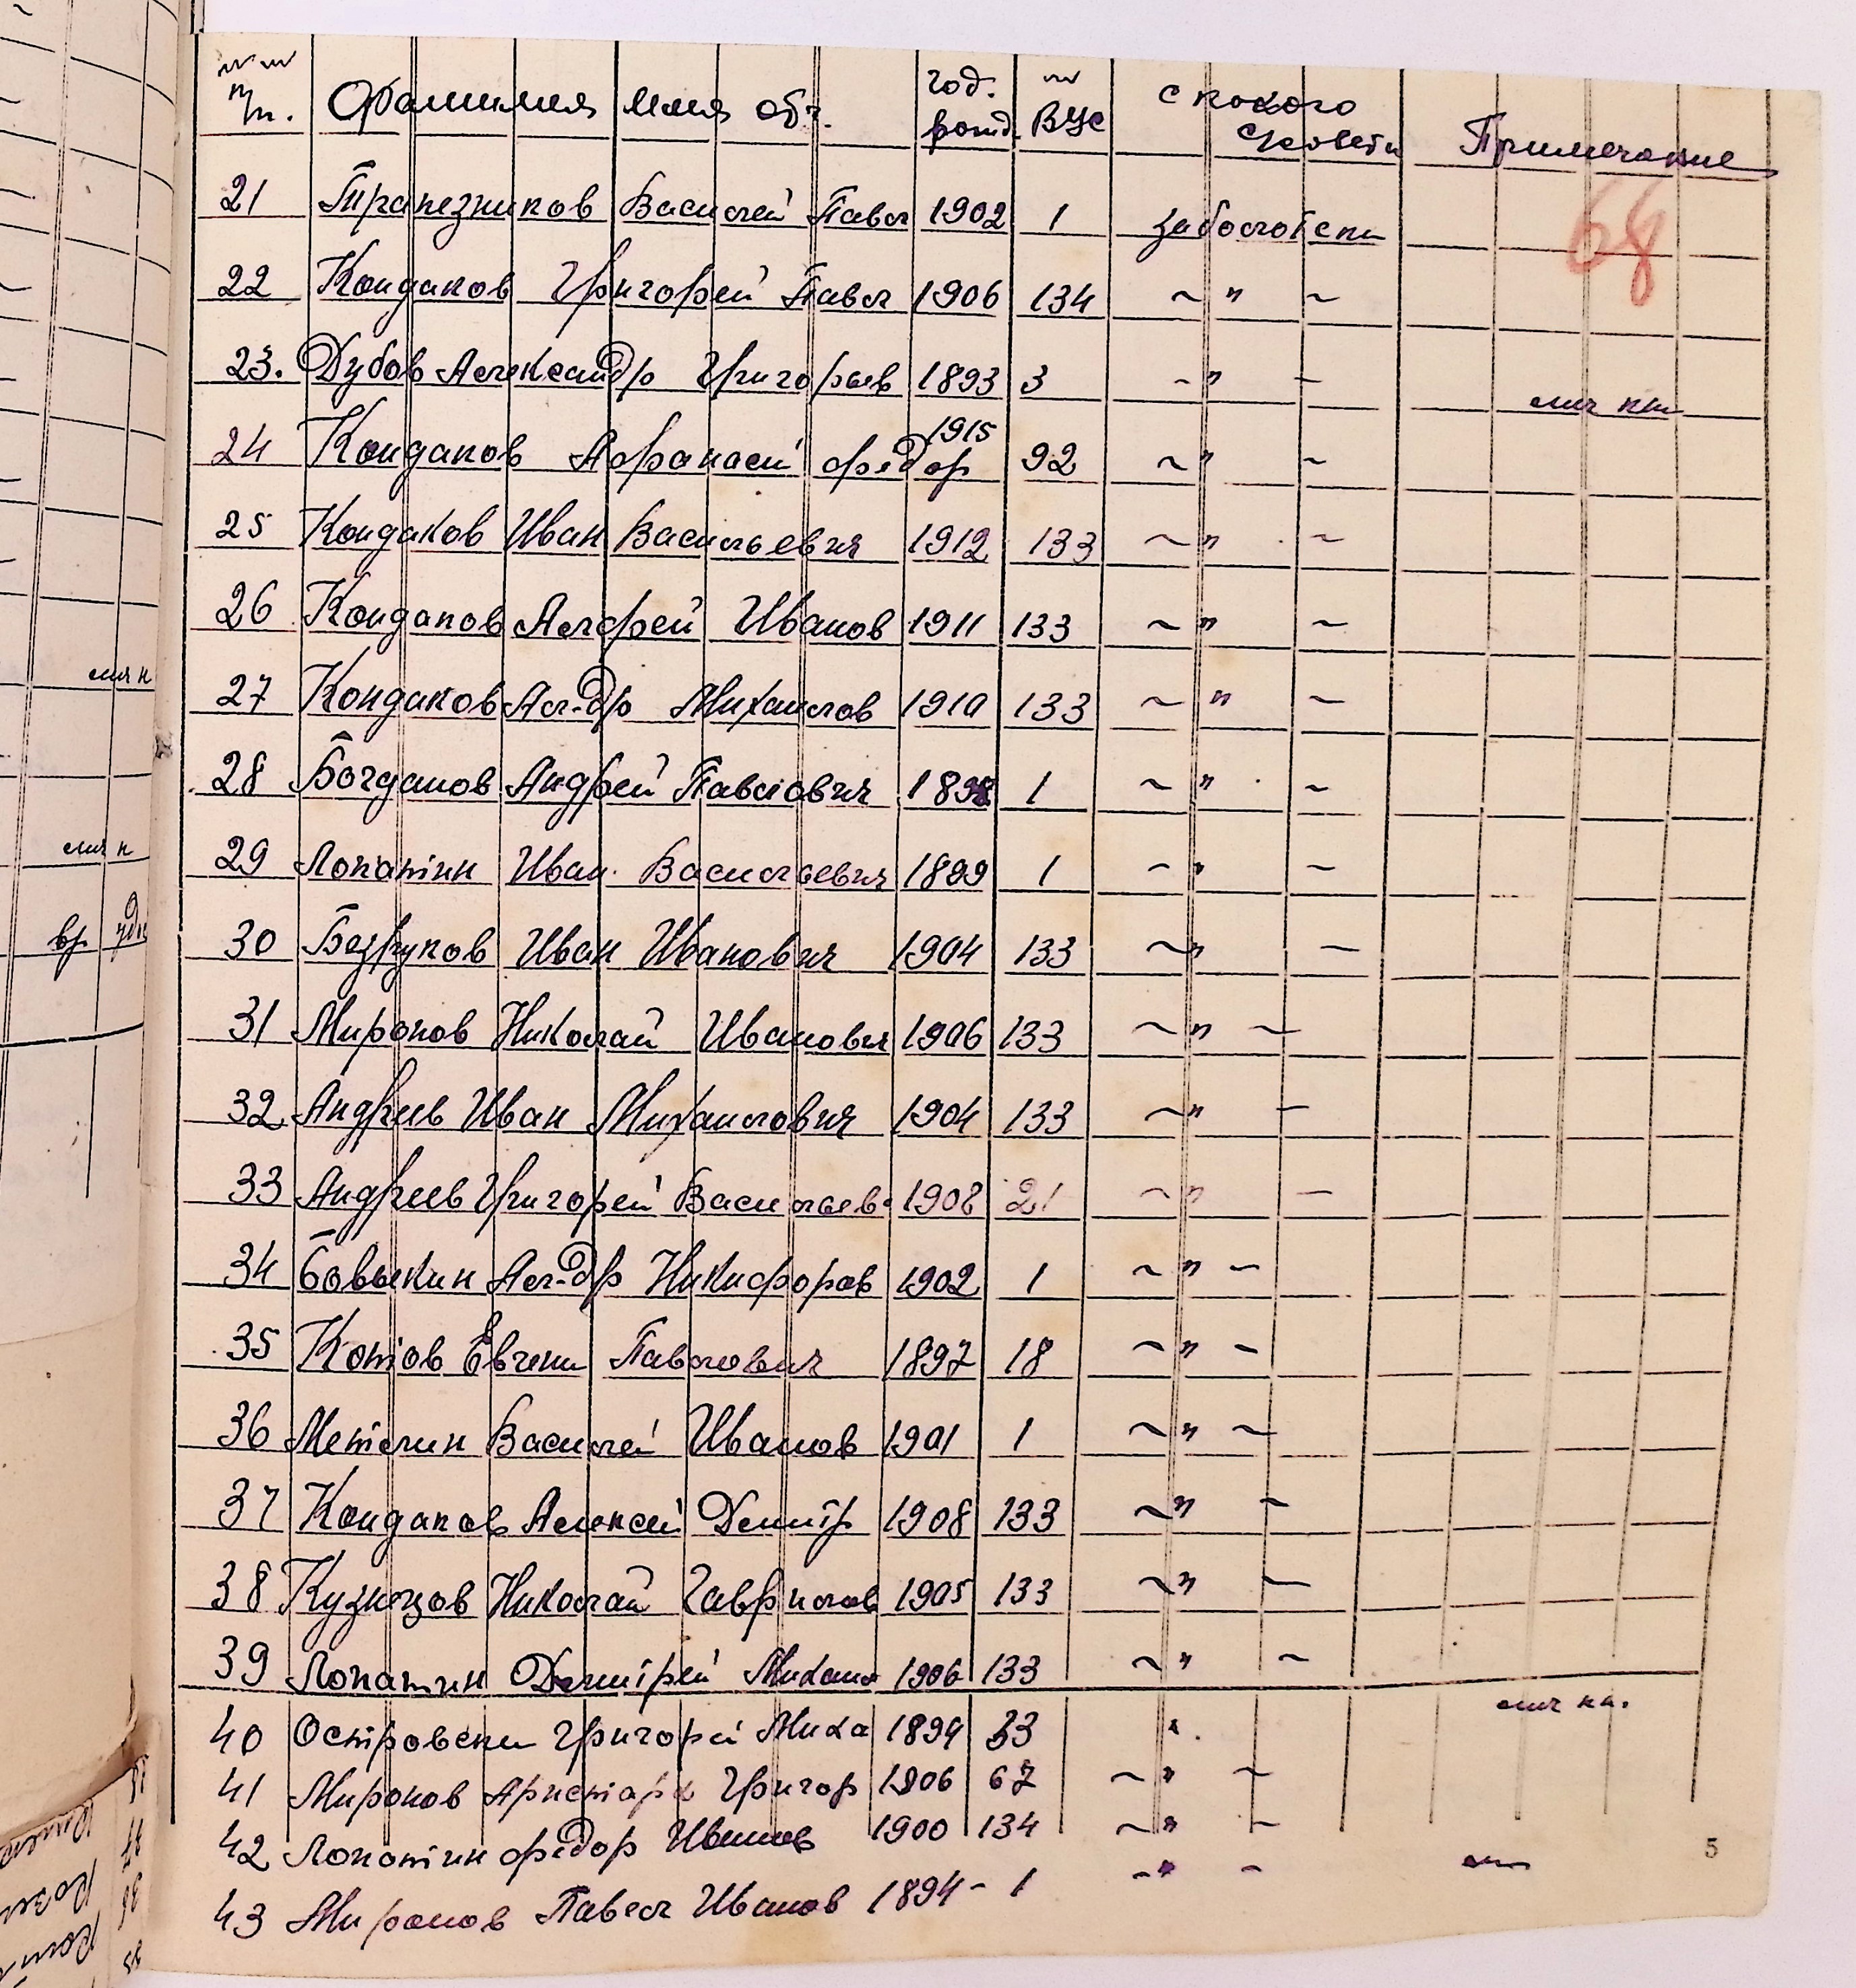 №№ п/п. Фамилия имя отч. год. рожд. № ВУС с какого с/совета Примечание
68
21 Трапезников Василей Павл 1902 1 Заболотски
22 Кондаков Григорей Павл 1906 134 ~ " ~
23. Дубов Александр Григорьев 1893 3 ~ " ~
24 Кондаков Афанасей Федор 1915 92 ~ " ~
25 Кондаков Иван Васильевич 1912 133 ~ " ~
26 Кондаков Алдрей Иванов 1911 133 ~ " ~
27 Кондаков Ал-др Михаилов 1910 133 ~ " ~
28 Богданов Андрей Павлович 1898 1 ~ " ~
29 Лопатин Иван Васильевич 1899 1 ~ " ~
30 Безруков Иван Иванович 1904 133 ~ " ~
31 Миронов Николай Иванович 1906 133 ~ " ~
32 Андреев Иван Михаилович 1904 133 ~ " ~
33 Андреев Григорей Васильев 1908 21 ~ " ~
34 Бовыкин Ал-др Никифоров 1902 1 ~ " ~
35 Котов Евгени Павлович 1897 18 ~ " ~
36 Метелин Василей Иванов 1901 1 ~ " ~
37 Кондаков Алексей Дмитр 1908 133 ~ " ~
38 Кузнецов Николай Гаврилов 1905 133 ~ " ~
39 Лопатин Дмитрей Михаил 1906 133 ~ " ~
40 Островски Григорей Миха 1894 33 "
41 Миронов Аристарх Григор 1906 67 ~ " ~
42 Лопатин Федор Иванов 1900 134 ~ " ~
43 Миронов Павел Иванов 1894 - 1 ~ " ~
5